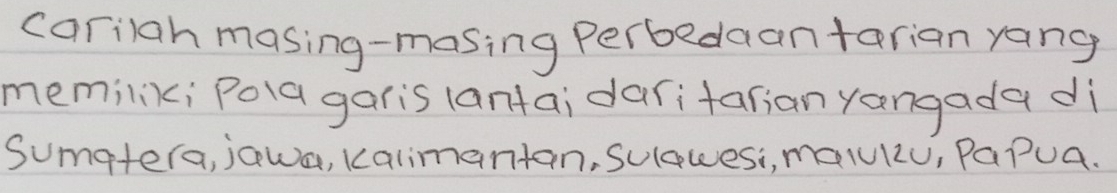 Carilah masing-masing Perbedaan tarian yang
memiliki Pola garis lantai dari tarian yang ada di
Sumatera, jawa, kalimantan, Sulawesi, maluku, PaPua.